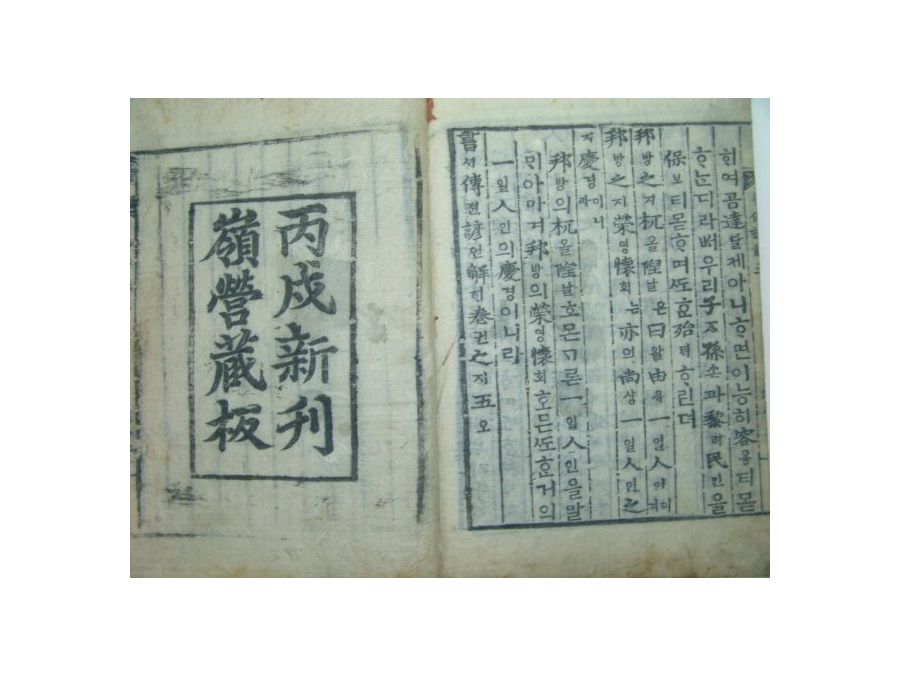 히여곰達달제아니ᄒᆞ면이能히容용티몯
ᄒᆞᄂᆞᆫ디라ᄡᅥ우리子ᄌᆞ孫손과黎려民민을
保보티몯ᄒᆞ며ᄯᅩᄒᆞᆫ殆ᄐᆡᄒᆞ린뎌
邦방之지杌올隉날은曰왈由유一일人인
邦방之지榮영懷회ᄂᆞᆫ亦역尙샹一일人인之
지慶경이니라
邦방의杌올隉날호ᄆᆞᆫᄀᆞᆯ온一일人인을말
ᄆᆡ아마며邦방의榮영懷회호ᄆᆞᆫᄯᅩᄒᆞᆫ거의
一일人인의慶경이니라
書셔傳젼諺언解ᄒᆡ卷권之지五오
丙戌新刊
嶺營藏板